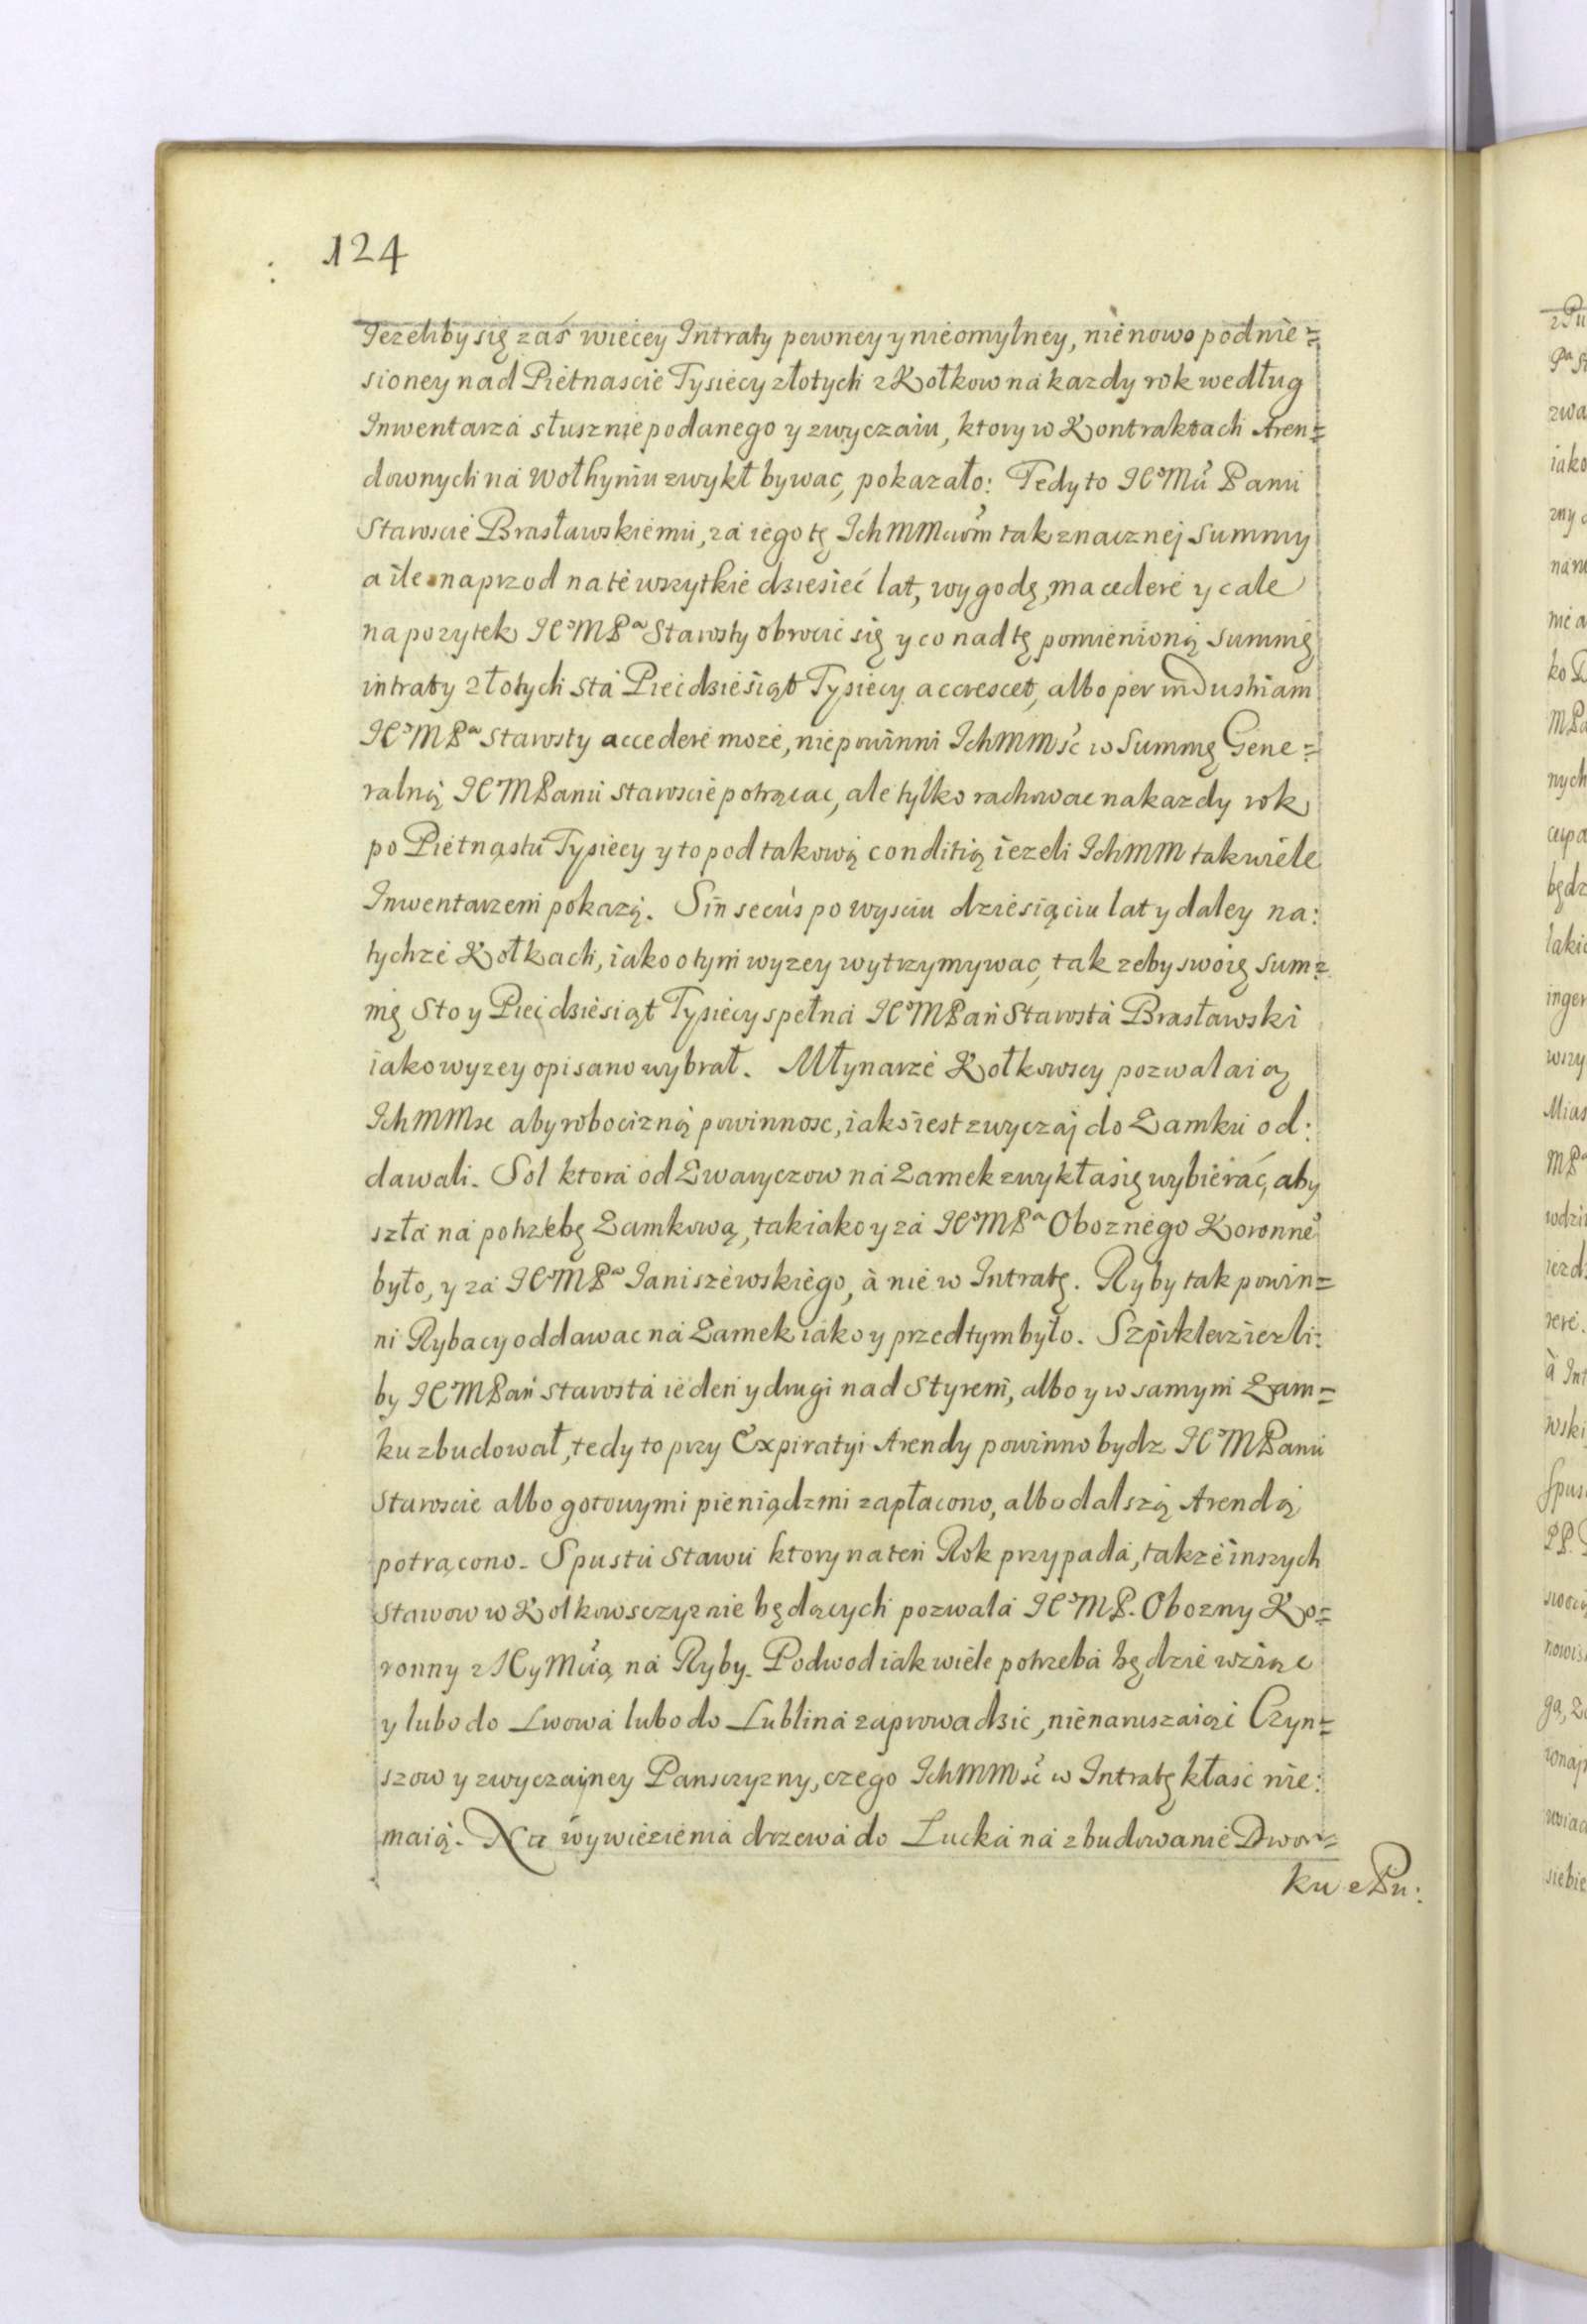 124
Jezeliby się zaś wiećey Intraty pewney y nieomylney, nie nowo podnie=
sioney nad Piėtnascie Tysięcy złotych z Kołkow na kazdy rok według
Inwentarza słusznie podanego y zwyczaiu, ktory w Kontraktach Aren=
downych na Wołhyniu zwykł bywac, pokazało: Tedy to JEoMu Panu
Staroscie Brasławskiemu, za iego tę Ich MMciom tak znacznej Summy
a ile naprzod na te wszytkie dziesieć lat, wygodę, ma cedere y cale
na pozytek JEoMPa Starosty obrocic się y co nad tę pomienioną Summę
intraty złotych sta Piećdziesiąt Tysięcy accrescet, albo per industriam
JEoMPa Starosty accedere moze, nie powinni Ich MMsc w Summę Gene=
ralną JEMPanu staroscie potrącac, ale tylko rachowac na kazdy rok
po Piėtnastu Tysiecy y to pod takową conditią iezeli Ich MM tak wiele
Inwentarzem pokazą. Sin secus po wysciu dziesiąciu lat y daley na:
tychze Kołkach, iako o tym wyzey wytrzymywac, tak zeby swoię Sum=
mę Sto y Piećdziesiąt Tysięcy spełna JEoMPan Starosta Brasławski
iako wyzey opisano wybrał. Młynarze Kołkowscy pozwalaią
Ich MMsc aby robocizną powinnosc, iako iest zwyczaj do Zamku od:
dawali. Sol ktora od Zwaryczow na Zamek zwykła się wybieráć, aby
szła na potrzebę Zamkową, tak iako y za JEoMPa Oboznego Koronneo
było, y za JEoMPa Janiszewskiego, à nie w Intratę. Ryby tak powin=
ni Rybacy oddawac na Zamek iako y przedtym było. Szpiklerz iezli:
by JEMPan Starosta ieden y drugi nad Styrem, albo y w samym Zam=
ku zbudował, tedy to przy Expiratyi Arendy powinno bydz JEoMPanu
Staroscie albo gotowymi pieniądzmi zapłacono, albo dalszą Arendą
potrącono. Spustu Stawu ktory na ten Rok przypada, takze inszych
Stawow w Kolkowsczyznie będących pozwala JEoMP. Obozny Ko=
ronny z JEyMcią na Ryby. Podwod iak wiele potrzeba będzie wziąc
y lubo do Lwowa lubo do Lublina zaprowadzic, nienaruszaiąc Czyn=
szow y zwyczajney Pansczyzny, czego Ich MMsc w Intratę kłasc nie:
maią. Na wywiezienia drzewa do Lucka na zbudowanie Dwor=
ku z Pu: